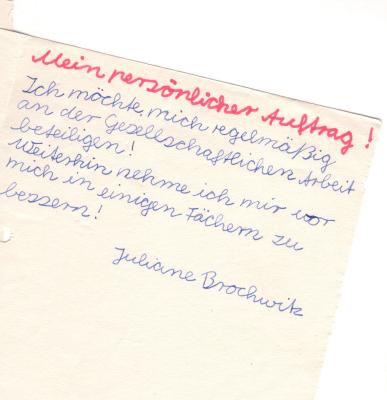 Mein persönlicher Auftrag!
Ich möchte mich regelmäßig
an der Gesellschaftlichen Arbeit
beteiligen!
Weiterhin nehme ich mir vor
mich in einigen Fächern zu
bessern!
Juliane Brochwitz